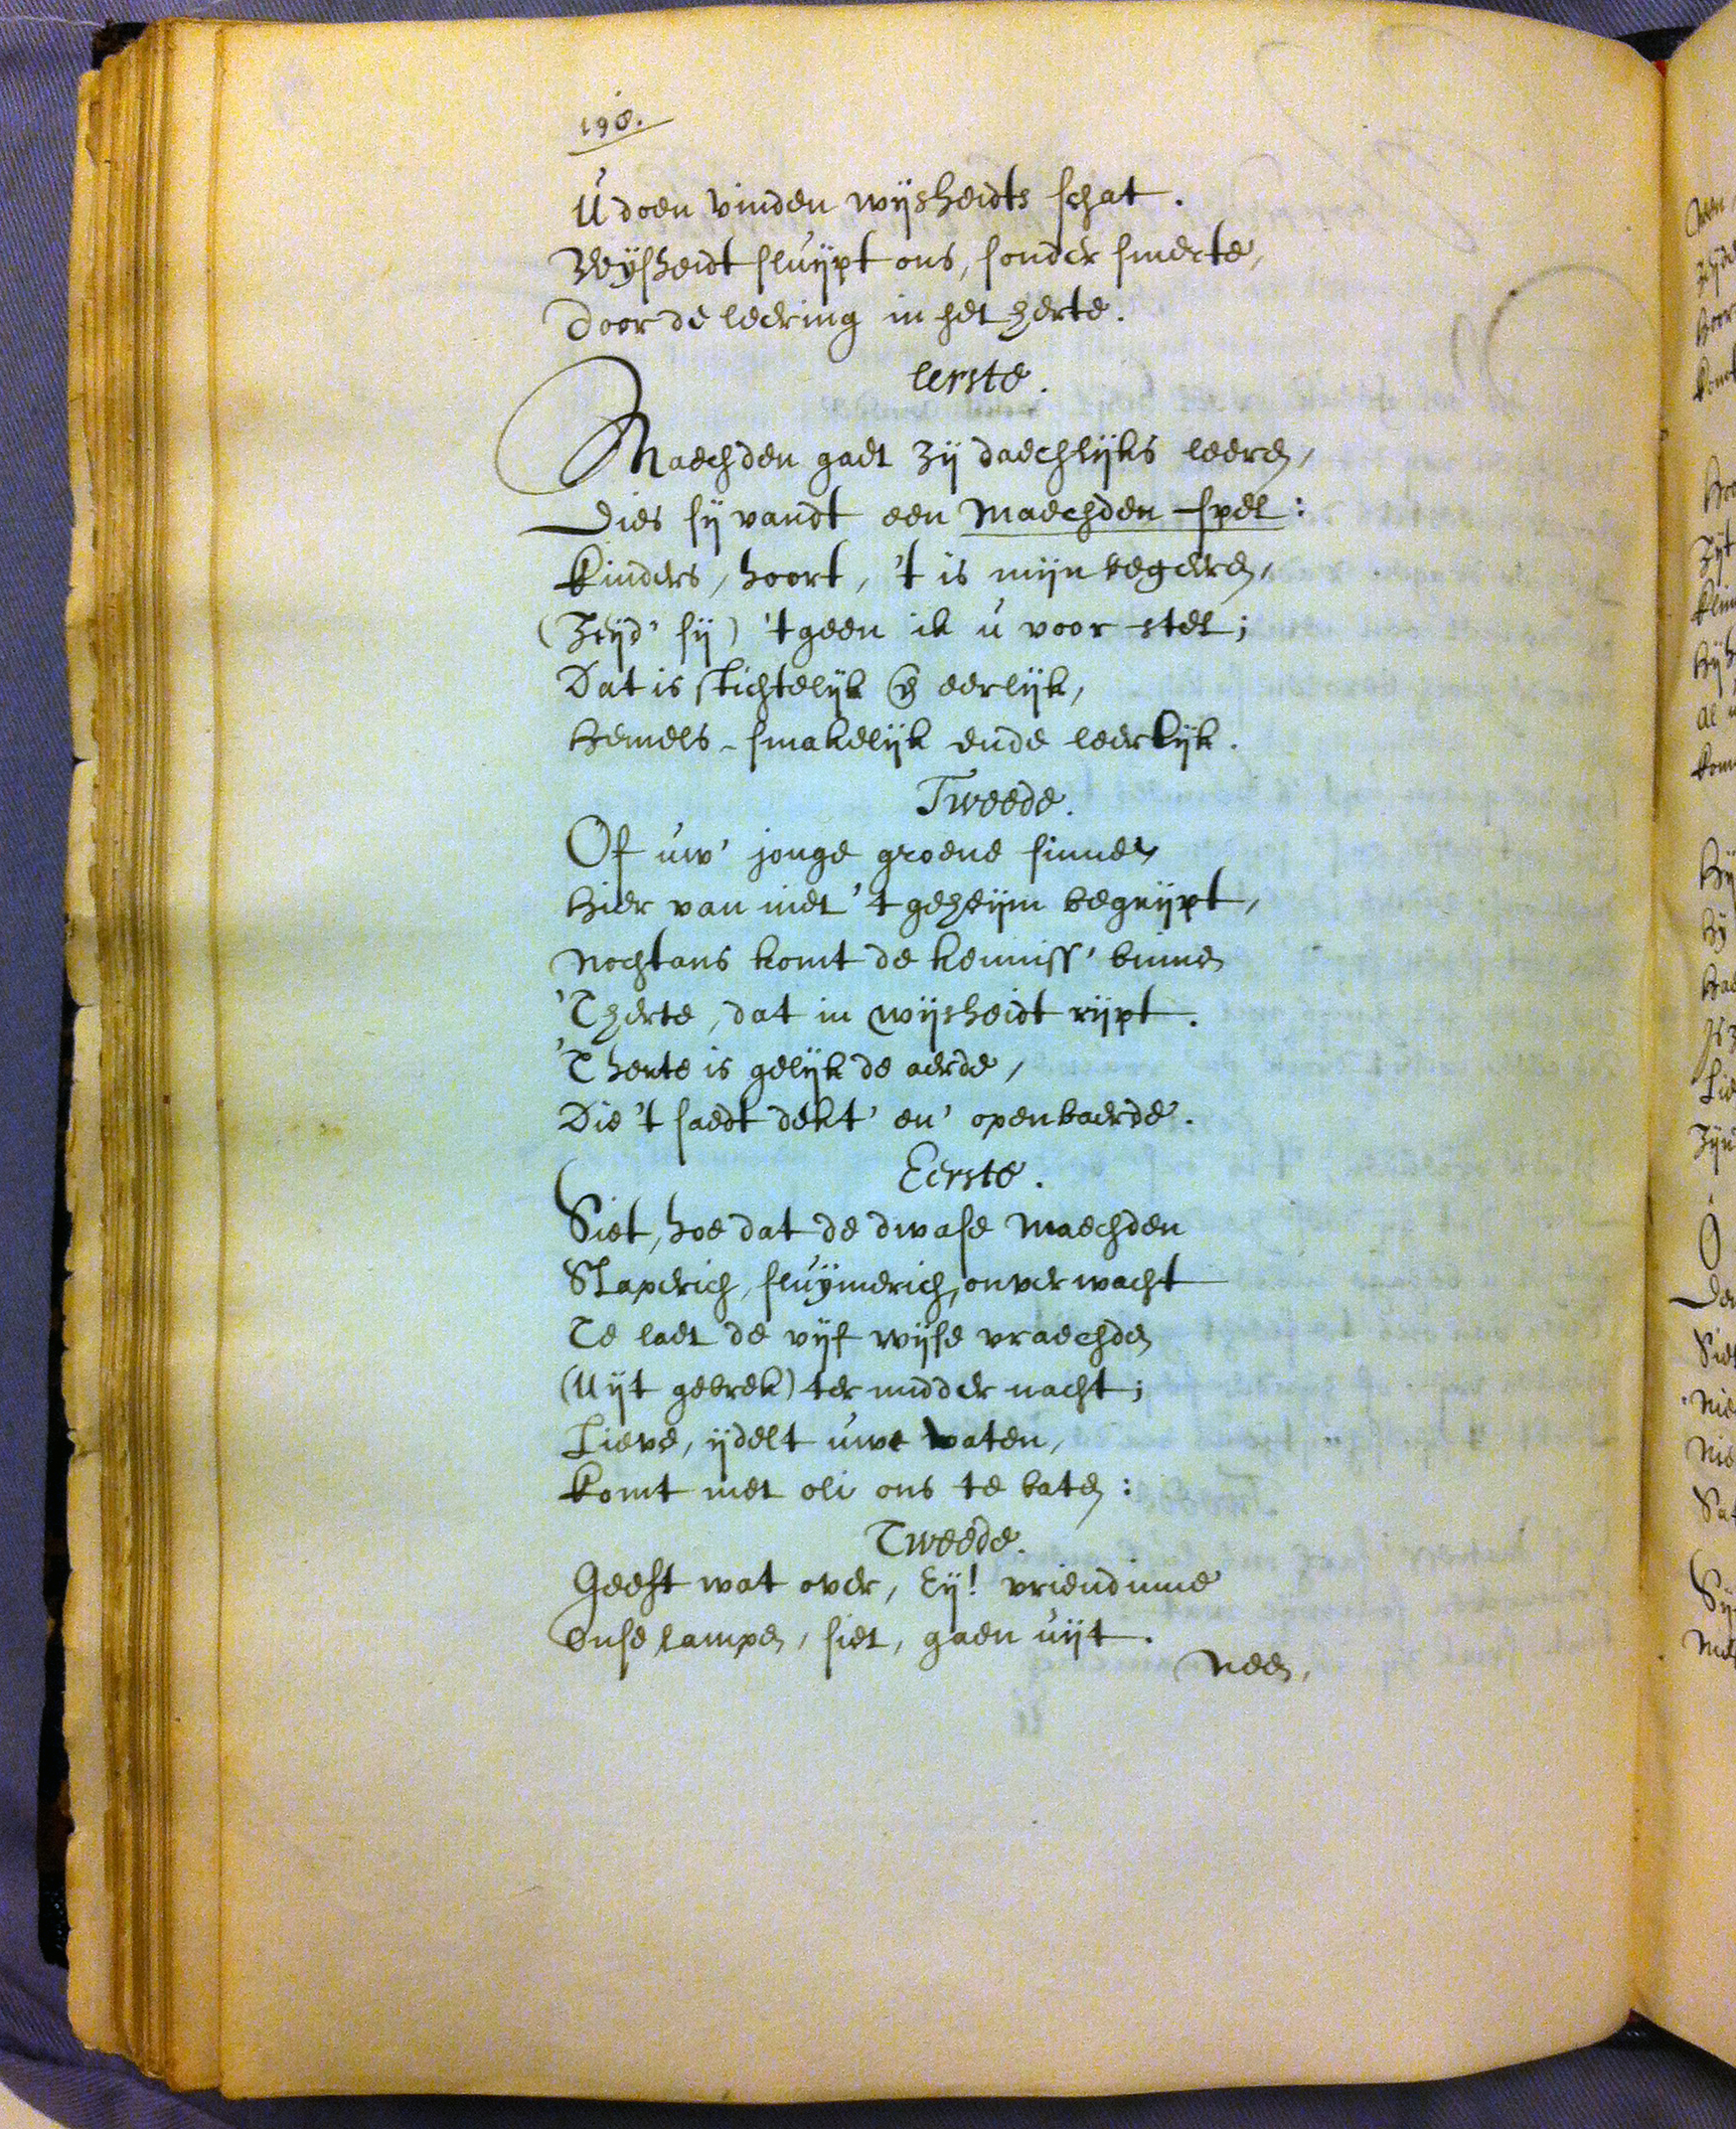 190.
U doen vinden wijsheidts schat.
Wijsheidt sluijpt ons, sonder smerte,
Door de leering in het herte.
Eerste.
Maechden gaet zij daechlijks leeren,
Dies sij vandt een Maechden-spel:
Kinders, hoort, 't is mijn begeren,
(Zeijd' sij) 't geen ik u voor stel;
Dat is stichtelijk en eerlijk,
Hemels-smakelijk ende leerlijk.
Tweede.
Of uw' jonge groene sinnen
Hier van niet 't geheijm begrijpt,
Nochtans komt de kenniss' binnen
'T herte, dat in wijsheidt rijpt.
'T herte is gelijk de aerde,
Die 't saedt dekt' en' openbaerde.
Eerste.
Siet, hoe dat de dwase Maechden
Slaperich, sluijmerich, onverwacht
Te laet de vijf wijse vraechden
(Uijt gebrek) ter midder nacht;
Lieve, ijdelt uwe vaten,
Komt met oli ons te baten:
Tweede.
Geeft wat over, Eij! vriendinne
Onse lampen, siet, gaen uijt.
Neen,